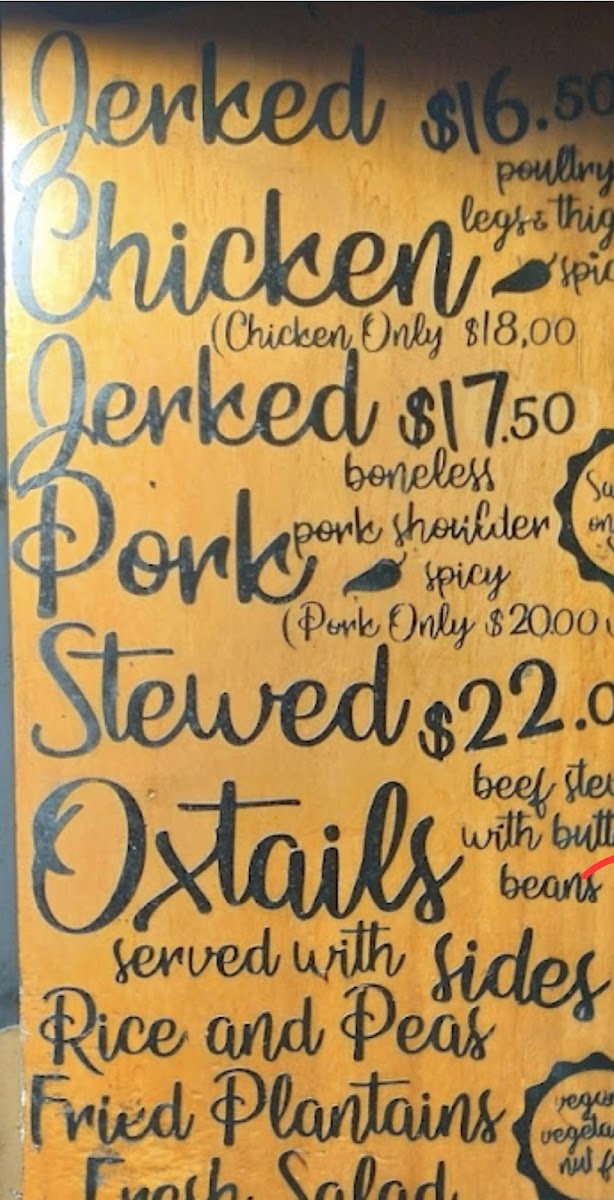 Jerked $16.50
poultry
Chicken legs & thig
spic
(Chicken Only $18,00
Jerked $17.50
boneless
Pork pork shoulder
spicy
(Pork Only $20.00
Stewed $22.0
beef ste
Oxtails with butt
beans
served with sides
Rice and Peas
Fried Plantains
Fresh Salad
Su
on
vegan
vegeta
nut f